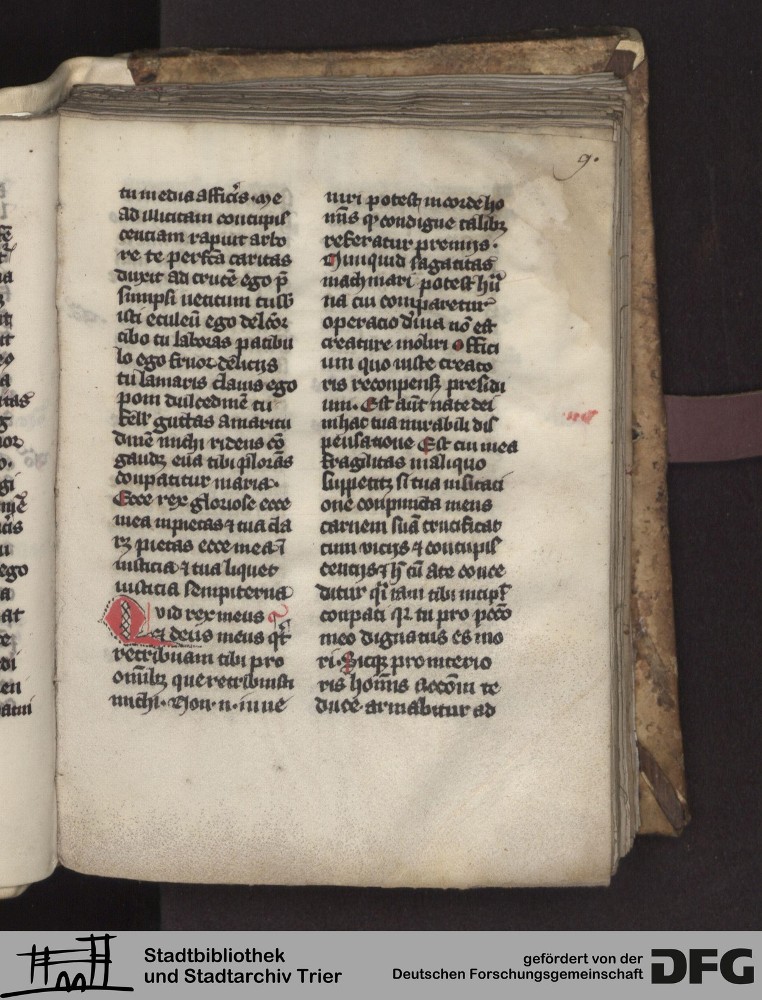 9.
tu in edia afficis. Me
ad illicitam concupis
centiam rapuit arbo
re te perfcā caritas
duxit ad crucē ego p̄
sumpsi uetitum tu sb
isti eculeū ego delcōr
cibo tu laboras patibu
lo ego fruor delicijs
tu lamaris clauis ego
pomi dulcedinē tu
fell' gustas amaritu
dinē michi ridens cō
gaudz eua tibi plorās
conpatitur maria.
Ecce rex gloriose ecce
mea inpietas ⁊ tua cla
rz pietas ecce mea ī
iusticia ⁊ tua liquet
iusticia sempiterna
Quid rex meus
et deus meus qr
retribuam tibi pro
omībz que retribuisti
michi. Non .n. inue
niri potest in corde ho
mīs qz condigne talibz
referatur premijs.
Nunquid sagacitas
machinari potest hūa
na cui comparetur
operacio diuīa nō est
creature moliri offici
um quo iuste creato
ris reconpensz presidi
um. Est aūt nate dei
in hac tua mirabili dis
pensatione Est cui mea
fragilitas in aliquo
suppetitz si tua uisitaci
one conpuncta mens
carnem suā crucificat
cum vicijs ⁊ concupis
cencijs ⁊ h' cū a te conce
ditur qi iam tibi incipit
conpati qr tu pro pccō
meo dignatus es mo
ri. Sicqz pro interio
ris homīs
duce armabitur ad
Stadtbibliothek
und Stadtarchiv Trier
gefördert von der
Deutschen Forschungsgemeinschaft
DFG